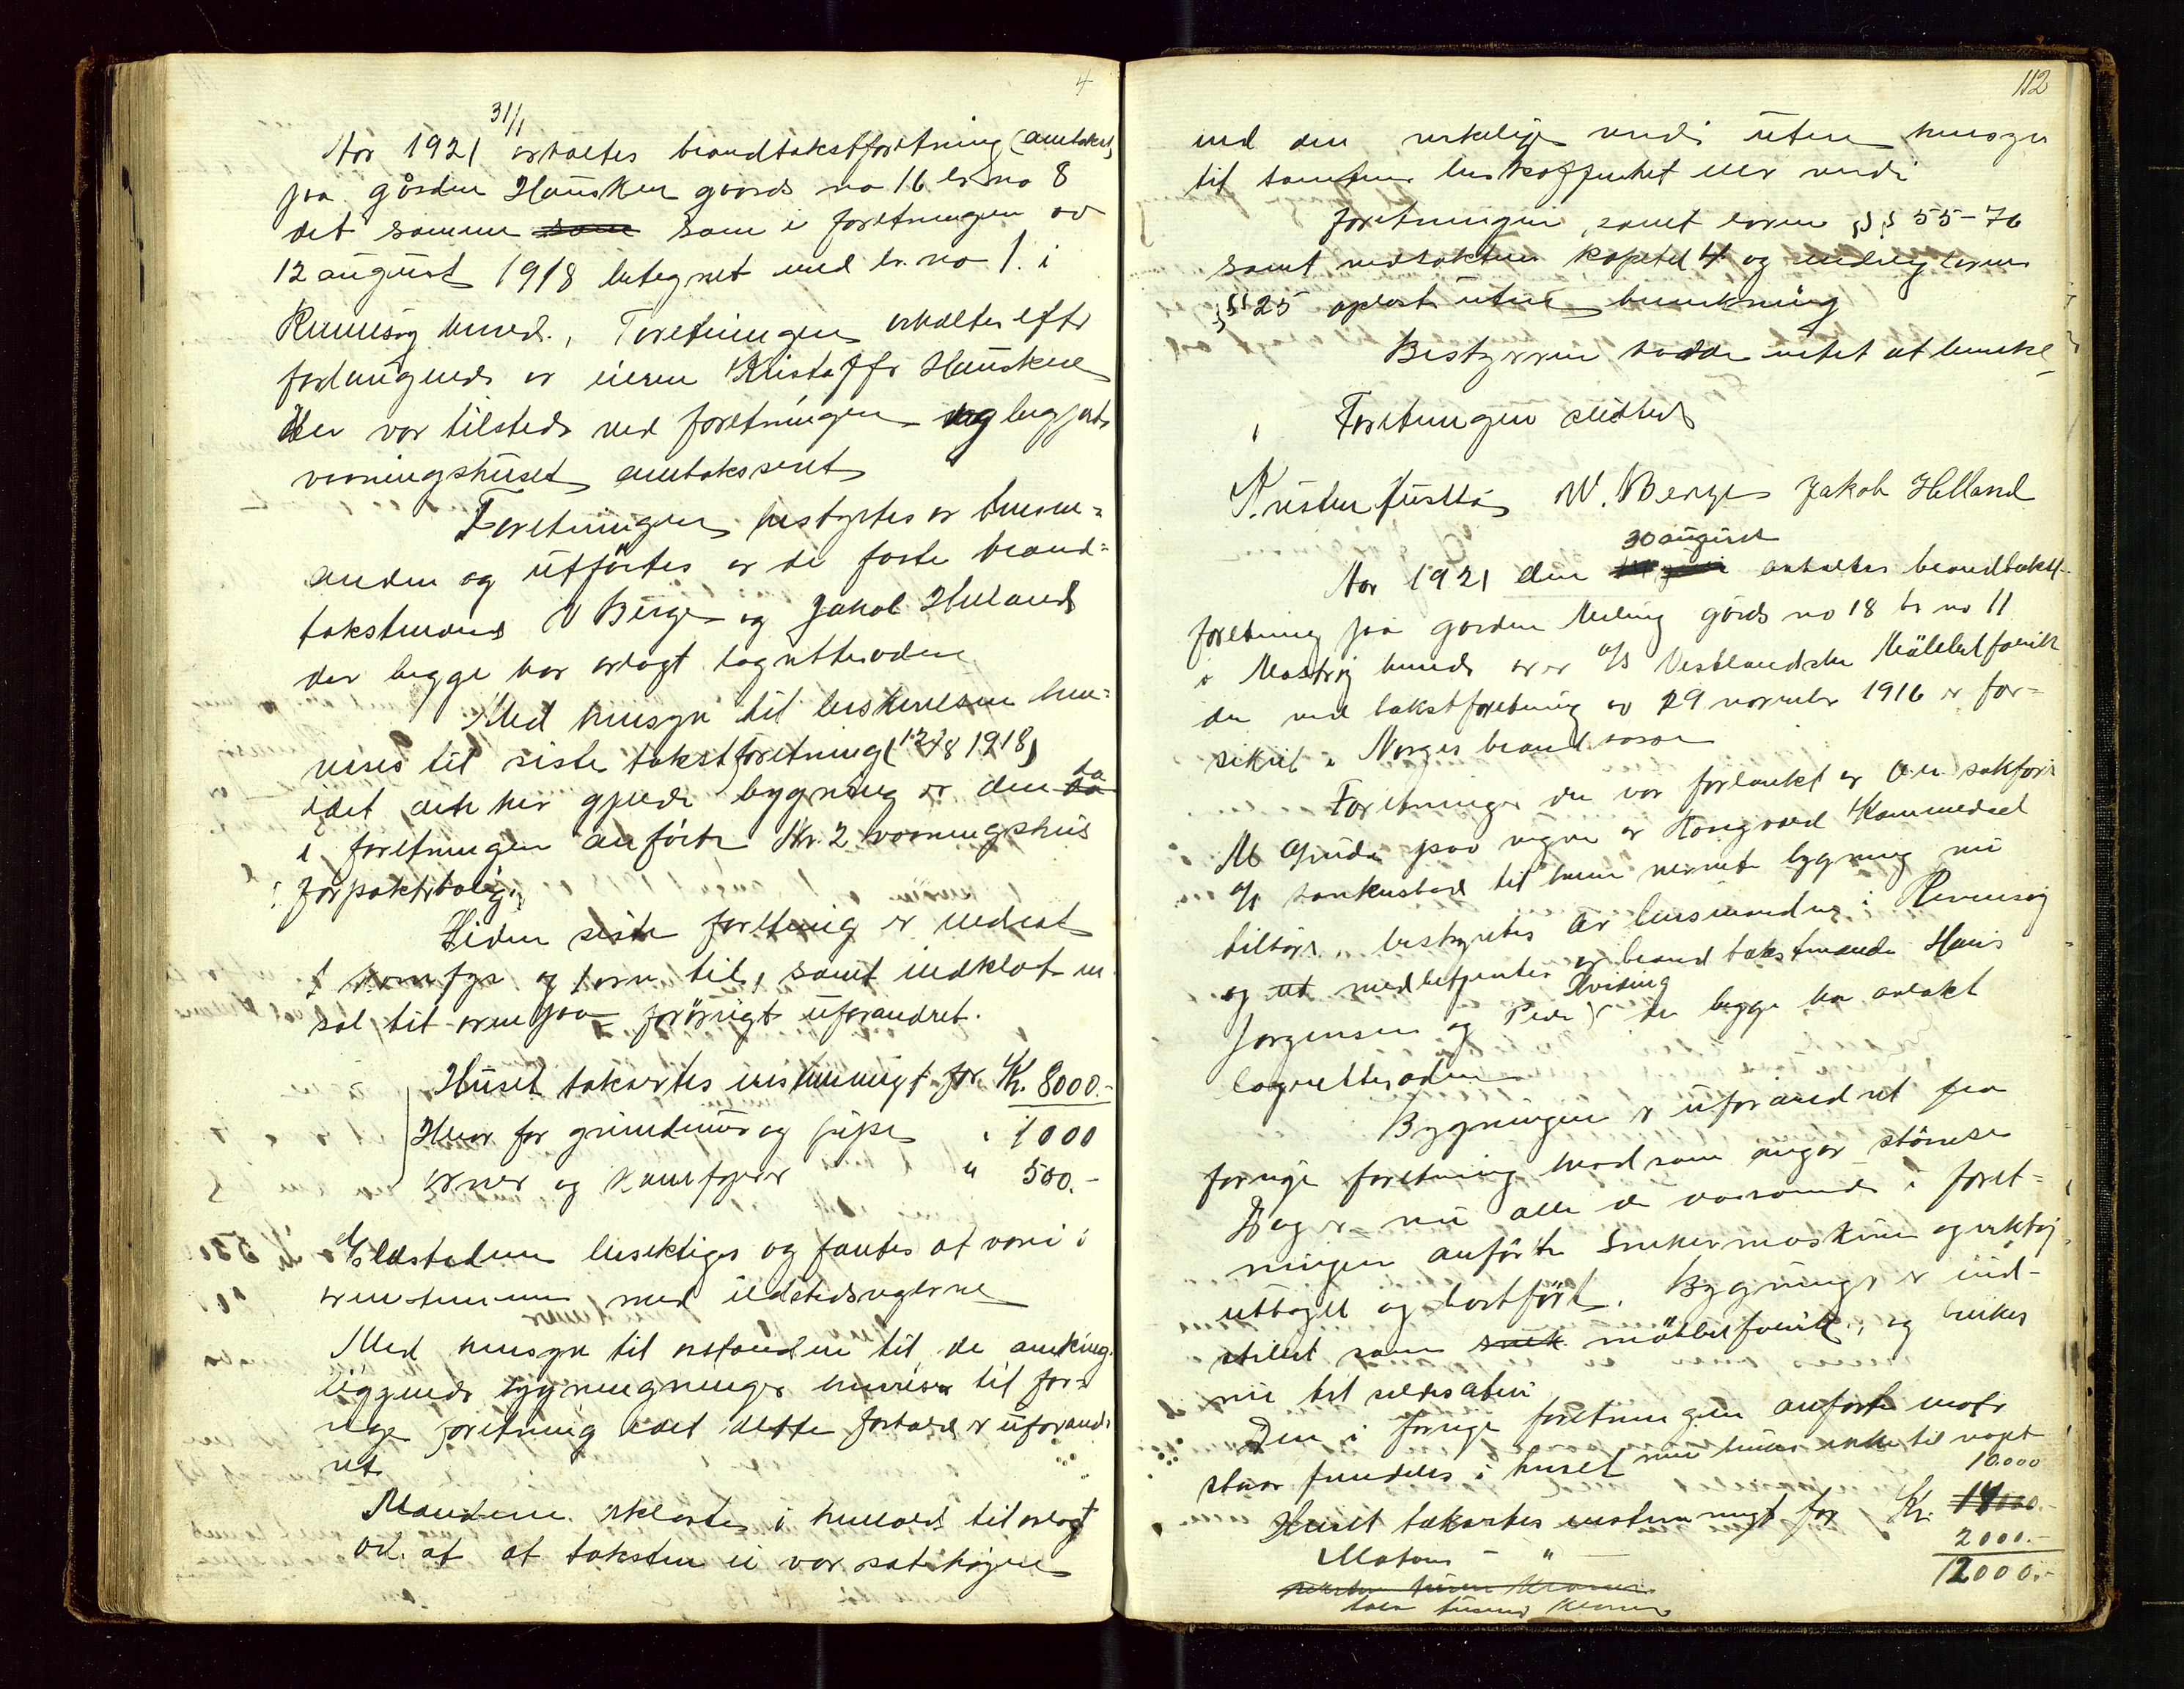 4
31/1
Aar 1921 avholtes brandtakstforetning (omtakst)
paa gården Hausken gaards no 16 br. no 8
det samme som som i foretningen av
12 august 1918 betegnet med br. no 1. i
Rennesøy herred. Foretningen avholdtes efter
forlangende av eieren Kristoffer Hausken
Der var tilstede ved foretningen og begjærte
vaaningshuset omtakseret
Foretningen bestyrtes av lensm=
anden og utførtes av de faste brand=
takstmænd W Berge og Jakob Helland
der begge har avlagt lagretteseden
Med hensyn til beskrivelsen hen=
vises til siste takstforetning (12/8 1918)
idet den her gjelde bygning er den da da
i foretningen anførte Nr. 2 vaaningshus
: forpakterbolig.
Siden siste foretning er indsat
1 komfyr og 1 ovn til, samt indklædt en
sal til ovenpaa forøvrigt uforandret.
Huset takseretes uinskrenkigt for Kr. 8000.-
Herav for grundmur og pipe " 1000
ovner og komfyrer " 500.-
Ildstederne besiktiges og fantes at være i
overenstemmen med ildstedsreglerne
Med hensyn til avstanden til de omkring
liggende bygningninger henvises til for=
rige foretning idet dette forhold er uforand
ret
Mændene erklærte i henhold til avlagt
ed. at at taksten ei var sat høiere
112
end den virkelige verdi uten hensyn
til tomtens beskaffenhet eller verdi
Foretningen, samt loven §§ 55-76
samt instruksen kapitel 4 og endringsloven
§§ 25 oplæst uten bemerkning
Bestyreren hadde intet at bemerke
Foretningen sluttet
W. Berge Jakob Helland
30 august
Aar 1921 den avholtes brandtakst-
foretning paa gaarden Meling gårds no 18 br no 11
i Mosterøy herred eier a/s Vestlandske Møbelfabrik
der ved takstforetning av 29 november 1916 er for=
sikret i Norges brandkasse
Foretningen der var forlankt av O.r. sakfører
M Gjude paa vegne av Kongsgaard Kommendal
a/s konkursbo til hvem nævnte bygning nu
tilhører, bestyrtes av lensmanden i Rennesøy
og ut medbetjentes av brandtakstmænd Hans
Jørgensen og Peder Kvising der begge har avlakt
lagretteseden
Bygningen er uforandret fra
forrige foretning hvad som angår størrelse
Dog er nu alle de værende i foret=
ningen anførte snekermaskiner og verktøi
uttaget og bortført. Bygningen er ind-
stillet som snek møbelfabrik, og brukes
nu til sildesalteri
Den i forrige foretningen anførte motor
staar fremdeles i huset men brukes ikke til noget
10.000
Huset takseretes uinskrenkigt for Kr. 14000.-
Motoren - " - 2000.-
12000.-
tolv tusen kroner